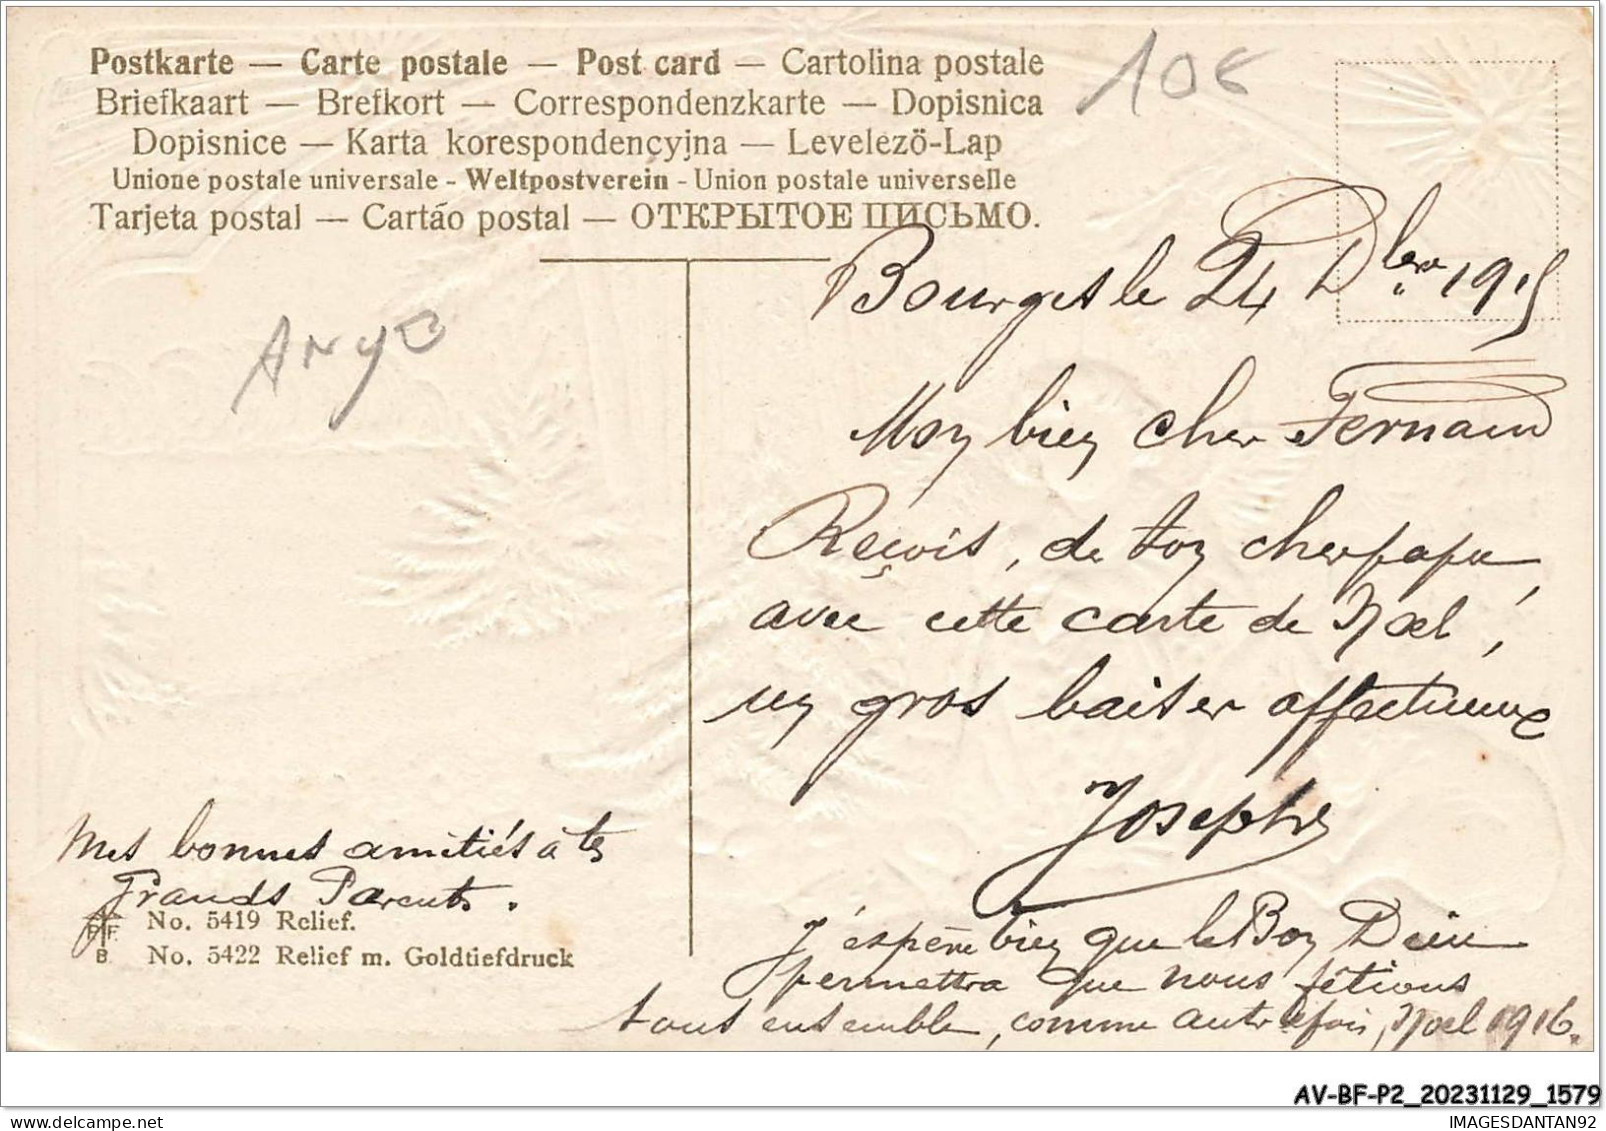 Postkarte — Carte postale — Post card — Cartolina postale
Briefkaart — Brefkort — Correspondenzkarte — Dopisnica
Dopisnice — Karta korespondencyjna — Levelező-Lap
Unione postale universale - Weltpostverein - Union postale universelle
Tarjeta postal — Cartão postal — ОТКРЫТОЕ ПИСЬМО.
10€
Bourges le 24 Dbre 1915
Mon bien cher Fernand
Reçois, de ton cher papa,
avec cette carte de Noel,
un gros baiser affectueux
Joseph
J'éspère bien que le Bon Dieu
permettra que nous fêtions
tous ensemble, comme autrefois, Noel 1916.
Mes bonnes amitiés à tes
Grands Parents.
No. 5419 Relief.
No. 5422 Relief m. Goldtiefdruck
P F
B
AV-BF-P2_20231129_1579
IMAGESDANTAN92